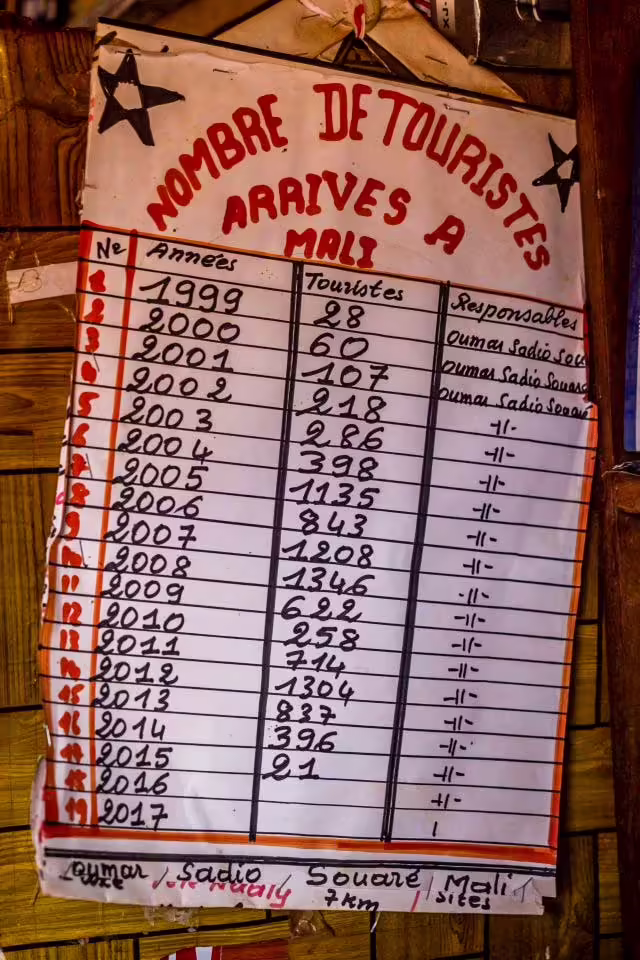 NOMBRE DE TOURISTES
ARRIVES A
MALI
Nº Années Touristes Responsables
1 1999 28 Oumar Sadio Sou
2 2000 60 Oumar Sadio Souaré
3 2001 107 Oumar Sadio Souaré
4 2002 218 -11-
5 2003 286 -11-
6 2004 398 -11-
7 2005 1135 -11-
8 2006 843 -11-
9 2007 1208 -11-
10 2008 1346 -11-
11 2009 622 -11-
12 2010 258 -11-
13 2011 714 -11-
14 2012 1304 -11-
15 2013 837 -11-
16 2014 396 -11-
17 2015 21 -11-
18 2016 -11-
19 2017
Oumar / Sadio / Souaré / Mali
7km sites